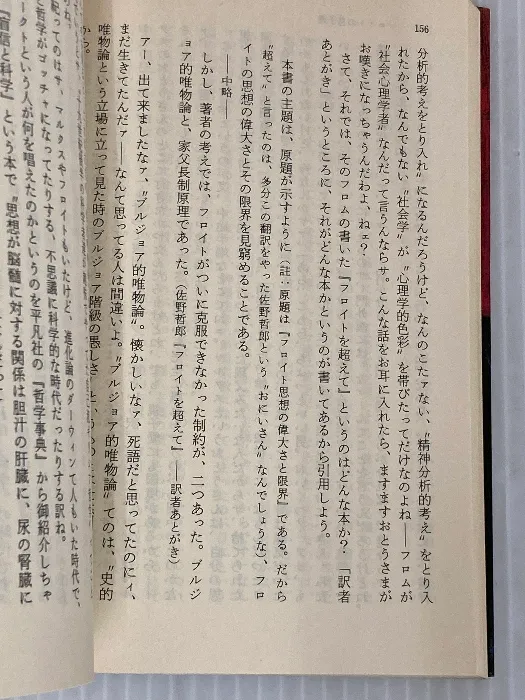 156
分析的考えをとり入れ〟になるんだろうけど、なんのこたァない、〝精神分析的考え〟をとり入
れたから、なんでもない〝社会学〟が〝心理学的色彩〟を帯びたってだけなのよね――フロムが
〝社会心理学者〟なんだって言うんならサ。こんな話をお耳に入れたら、ますますおとうさまが
お嘆きになっちゃうんだわよ、ねェ？
さて、それでは、そのフロムの書いた『フロイトを超えて』というのはどんな本か？「訳者
あとがき」というところに、それがどんな本かというのが書いてあるから引用しよう。
本書の主題は、原題が示すように（註：原題は『フロイト思想の偉大さと限界』である。だから
〝超えて〟と言ったのは、多分この翻訳をやった佐野哲郎という〝おにいさん〟なんでしょうな）、フロ
イトの思想の偉大さとその限界を見窮めることである。
――中略――
しかし、著者の考えでは、フロイトがついに克服できなかった制約が、二つあった。ブルジ
ョア的唯物論と、家父長制原理であった。（佐野哲郎『フロイトを超えて』――訳者あとがき）
アー、出て来ましたなァ、〝ブルジョア的唯物論〟。懐かしいなァ、死語だと思ってたのにィ、
まだ生きてたんだァ――なんて思ってる人は間違いよ。〝ブルジョア的唯物論〟てのは、〝史的
唯物論という立場に立って見た時のブルジョア階級の愚しさ
マルクスやフロイトもいたけど、進化論のダーウィンて人もいた時代で、
と哲学がゴッチャになってたりする、不思議に科学的な時代だったりする訳ね。
ークトという人が何を唱えたのかというのを平凡社の『哲学事典』から御紹介しちゃ
『盲信と科学』という本で、〝思想が脳髄に対する関係は胆汁の肝臓に、尿の腎臓に